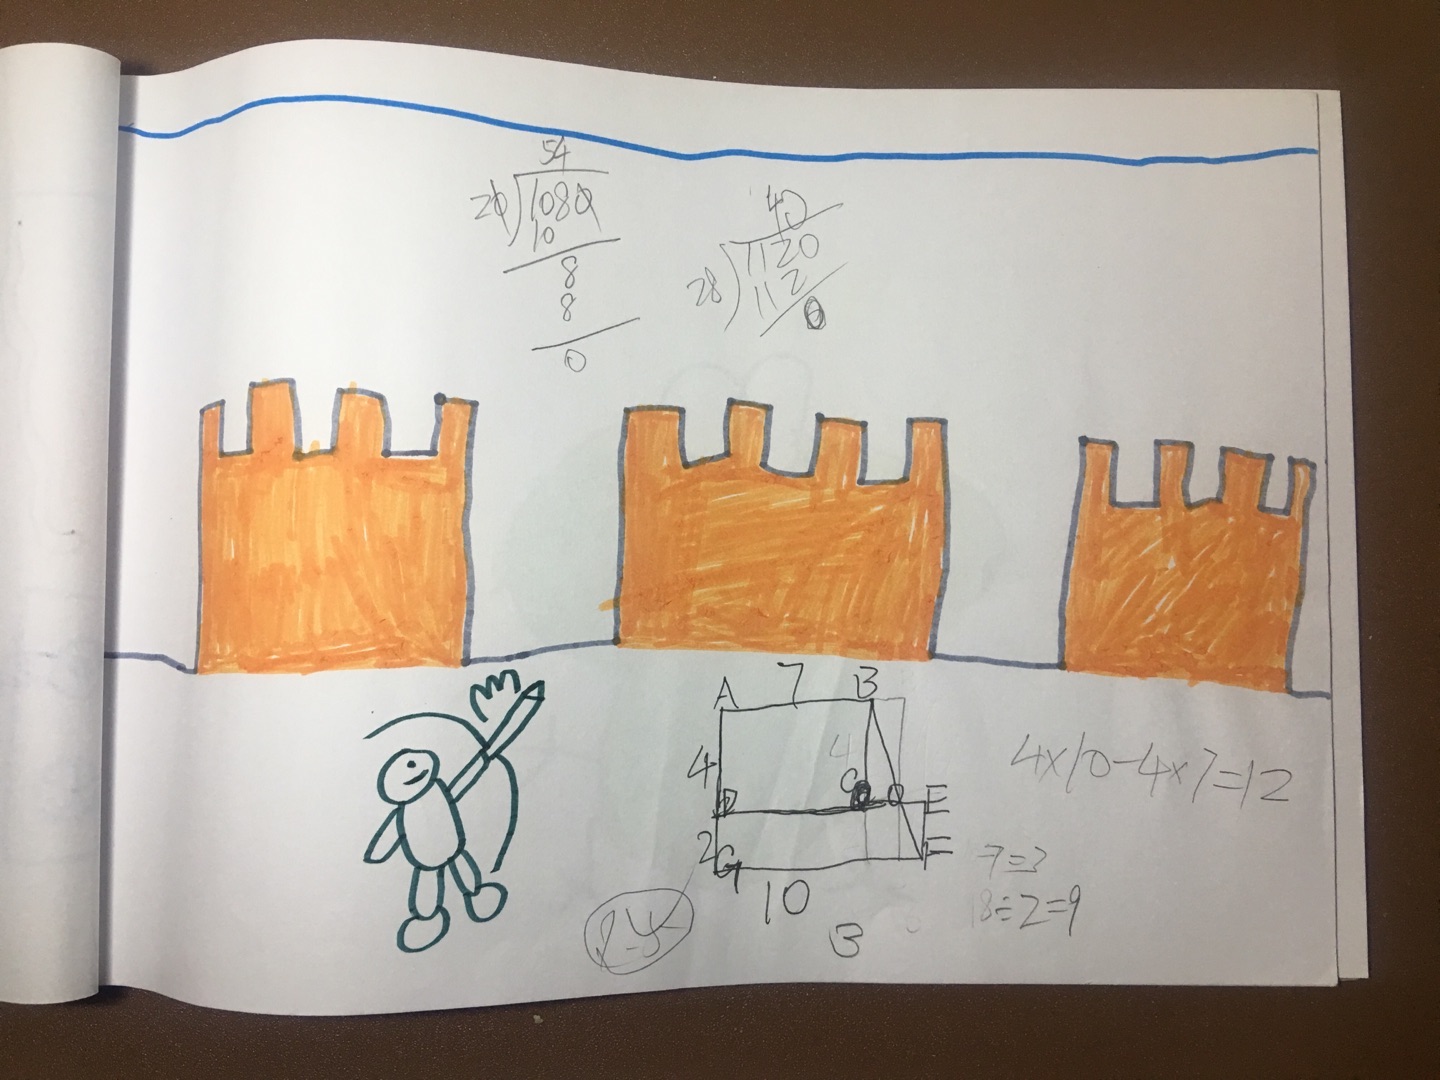 54
20 1080
10
8
8
0
40
28 1120
112
0
A 7 B
4 4
D C O E
2 G F
10
B
4×10-4×7=12
7=3
18÷2=9